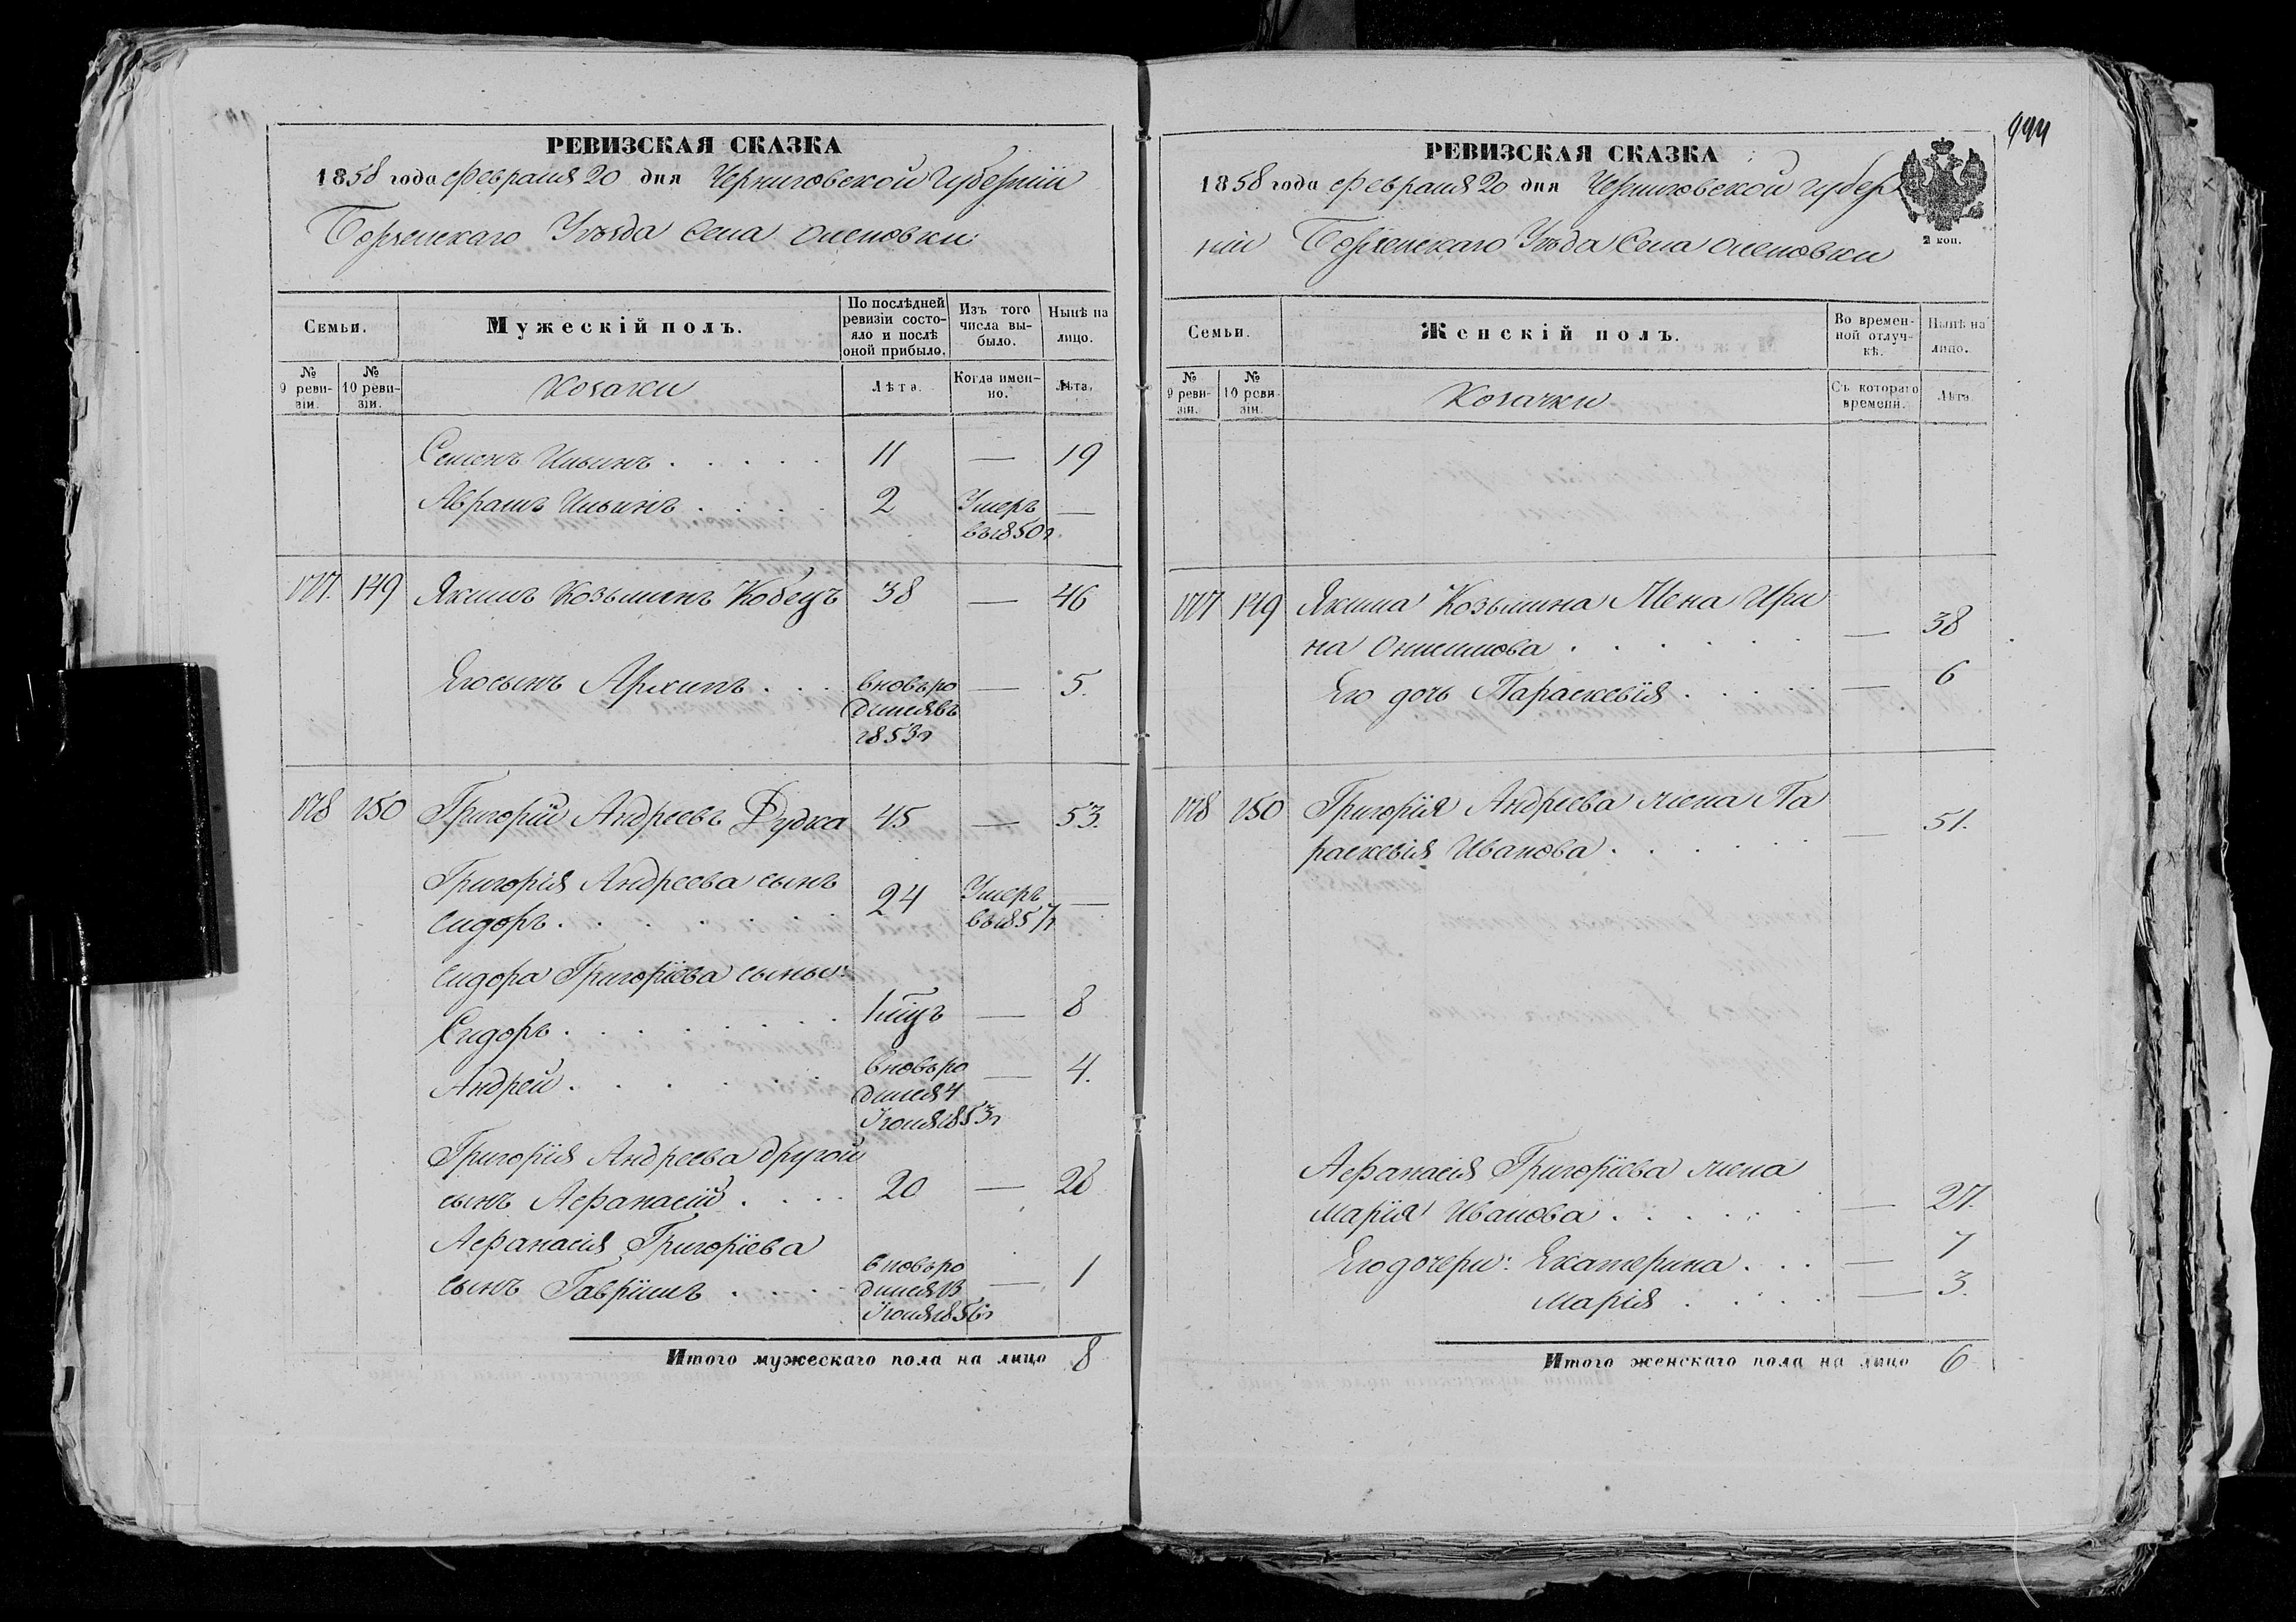 РЕВИЗСКАЯ СКАЗКА
1858 года Февраля 20 дня Черниговской Губерніи
Борзенскаго Уѣзда Села Оленовки
Семьи.
Мужескій полъ.
По послѣдней ревизіи состояло и послѣ оной прибыло.
Изъ того числа выбыло.
Нынѣ на лицо.
№ 9 ревизіи.
№ 10 ревизіи.
Козаки
Лѣта.
Когда именно.
Лѣта.
Семенъ Ильинъ . . . . . 11 — 19
Аврамъ Ильинъ . . . . 2 Умеръ —
въ 1850 г.
149 Якимъ Козьминъ Кобецъ 38 — 46
Его сынъ Архипъ . . . вновь ро — 5.
дился въ
1853 г
150 Григорій Андреевъ Дудка 45 — 53.
Григорія Андреева сынъ
Сидоръ . . . . . . . 24 Умеръ —
въ 1857 г
Сидора Григоріева сыны:
Сидоръ . . . . . . . . — 8
Андрей . . . . . . вновь ро — 4.
дился 4
Іюля 1853 г
Григорія Андреева другой
сынъ Афанасій . . . . 20 — 28
Афанасія Григоріева
сынъ Гаврішлъ . . . . вновь ро — 1
дился 13
Іюля 1856 г
Итого мужескаго пола на лицо 8
РЕВИЗСКАЯ СКАЗКА
1858 года Февраля 20 дня Черниговской Губер
ніи Борзенскаго Уѣзда Села Оленовки
2 коп.
Семьи.
Женскій полъ.
Во временной отлучкѣ.
Нынѣ на лицо.
№ 9 ревизіи.
№ 10 ревизіи.
Козачки
Съ котораго времени.
Лѣта.
149 Якима Козьмина Жена Ири
на Онисимова . . . . . . — 38
Его дочь Параскевія . . . . . — 6
150 Григорія Андреева жена Па
раскевія Иванова . . . . . . — 51.
Афанасія Григоріева жена
Марія Иванова . . . . . — 27.
Его дочери: Екатерина . . . — 7
Марія . . . . . — 3.
Итого женскаго пола на лицо 6